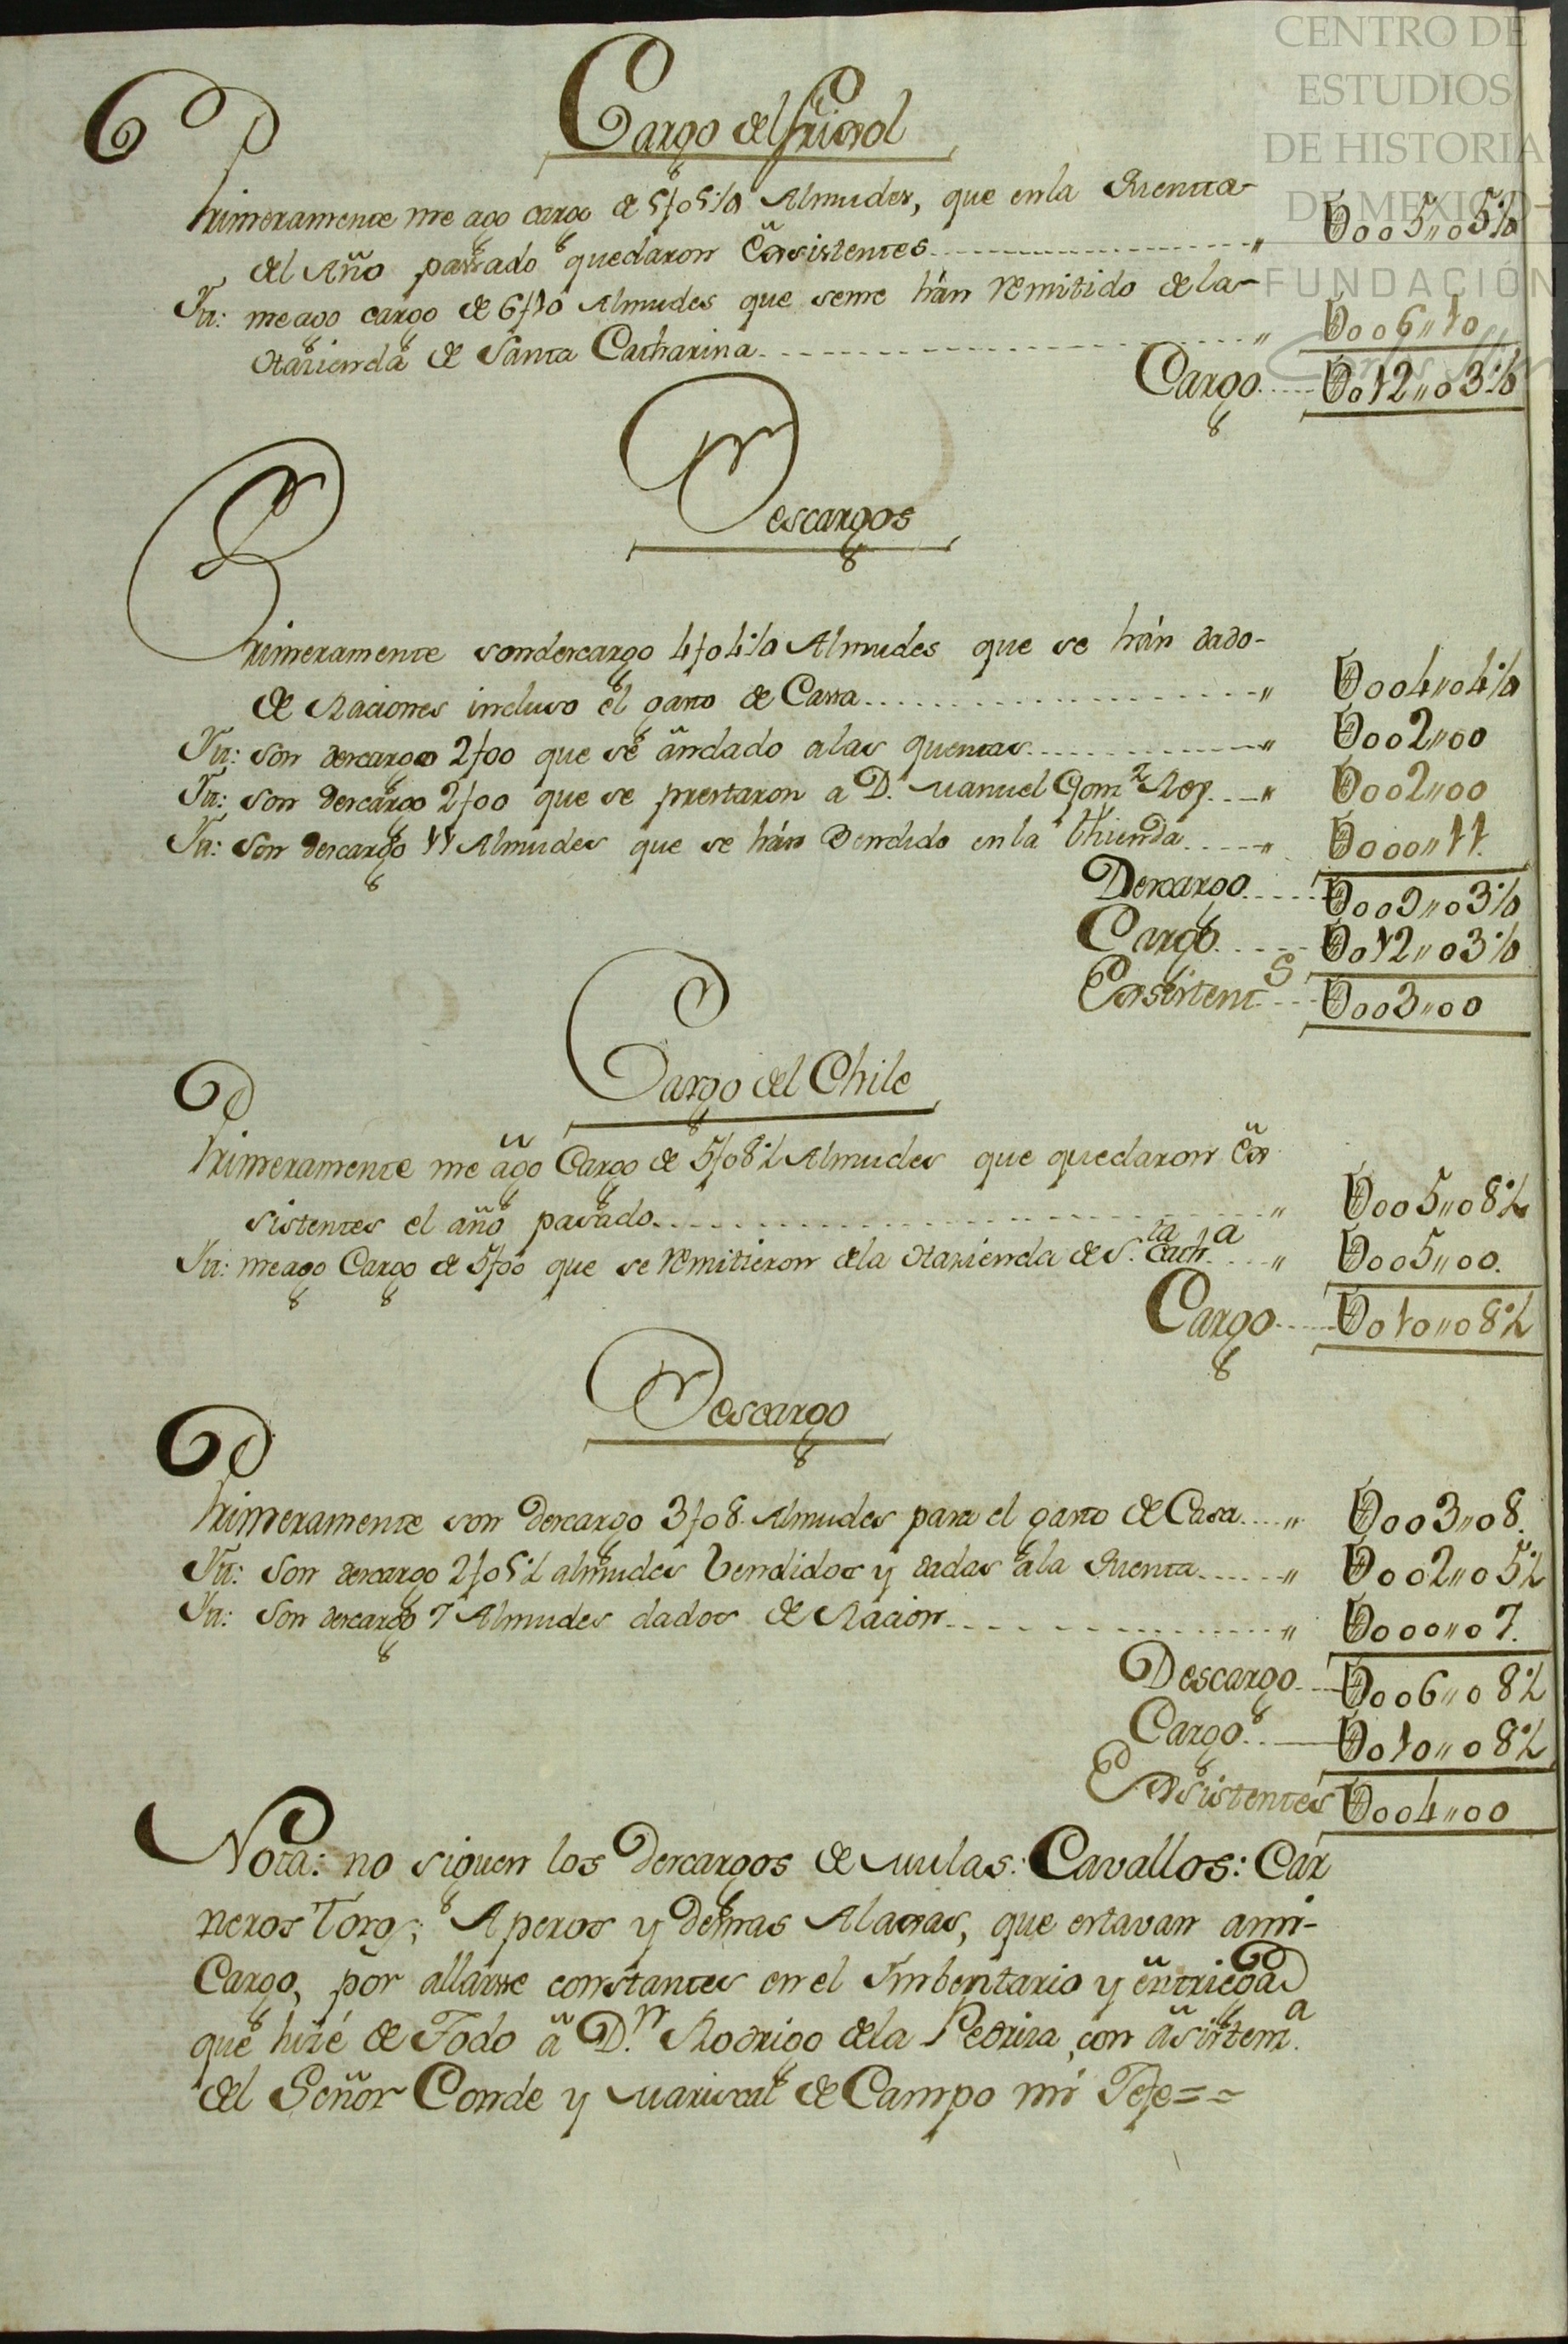 CENTRO DE
ESTUDIOS
DE HISTORIA
DE MEXICO
FUNDACIÓN
Cargo del frixol
Primeramente me ago cargo de 5f05½ Almudes, que en la Quenta
del Año passado quedaron Ecsistentes " 005"05½
Itt: me ago cargo de 6f10 Almudes que seme hán remitido de la
Hazienda de Santa Catharina " 006"10
Cargo 012"03½
Descargos
Primeramente son descargo 4f04½ Almudes que se hán dado
de Raciones incluso el gasto de Cassa " 004"04½
Itt: son descargo 2f00 que se án dado alas quentas " 002"00
Itt: son descargo 2f00 que se prestaron a D. Manuel Gomz Rey " 002"00
Itt: son descargo 11 Almudes que se hán Vendido en la thienda " 000"11
Descargo 009"03½
Cargo 012"03½
Ecsistents 003"00
Cargo del Chile
Primeramente me ago Cargo de 5f08½ Almudes que quedaron Ec
sistentes el año pasado " 005"08½
Itt: me ago Cargo de 5f00 que se remitieron dela Hazienda de S.ta Cath.a " 005"00
Cargo 010"08½
Descargo
Primeramente son descargo 3f08 Almudes para el gasto de Casa " 003"08
Itt: son descargo 2f05½ almudes bendidos y dadas ala Quenta " 002"05½
Itt: son descargo 7 Almudes dados de Racion " 000"07
Descargo 006"08½
Cargo 010"08½
Ecsistentes 004"00
Nota: no siguen los Descargos de Mulas: Cavallos: Car
neros Toros; Aperos y demas Alacias, que estavan ami
Cargo, por allarsse constantes en el Imbentario y entriega
que hizé de Todo á D.n Rodrigo dela Pedriza, con asistem.a
del Señor Conde y Mariscal de Campo mi Jefe==